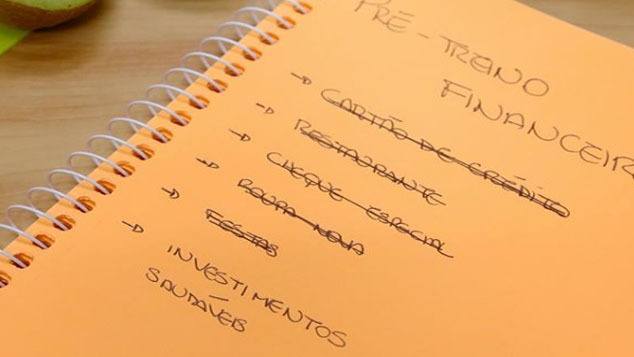 PRÉ-TREINO
FINANCEIR
→ CARTÃO DE CRÉDITO
→ RESTAURANTE
→ CHEQUE ESPECIAL
→ ROUPA NOVA
→ FESTAS
→ INVESTIMENTOS
SAUDÁVEIS